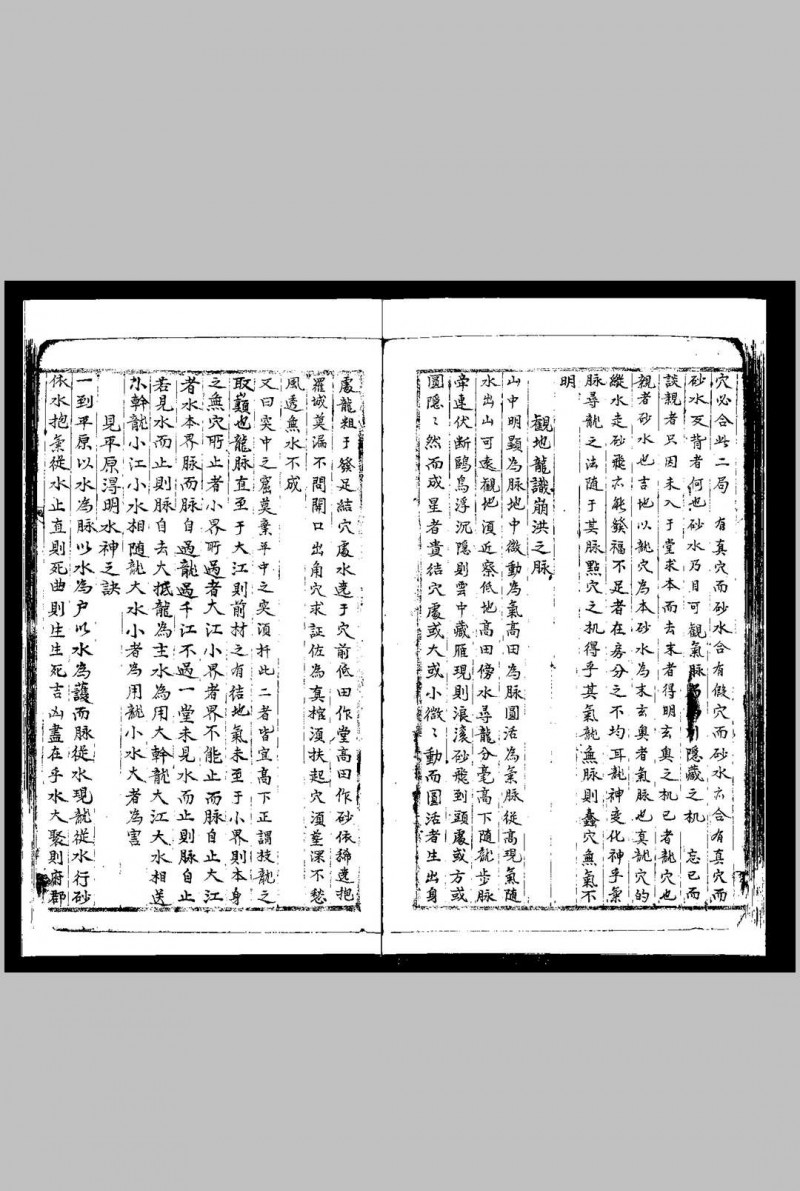 穴必合此二局　有真穴而砂水合有假穴而砂水六合有真穴而
砂水反背者何也砂水乃目可観氣脉隱藏之机　忘已而
談親者只因未入于堂求本而去末者得明玄奥之机已者龍穴也
親者砂水也吉地以龍穴為本砂水為末玄奥者氣脉也真龍穴的
縱水走砂飛六能發福不足者在房分之不均耳龍神变化神乎氣
脉尋龍之法随于其脉點穴之机得乎其氣龍無脉則蠢穴無氣不
明
観地龍識崩洪之脉
山中明顯為脉地中微動為氣高田為脉圓活為氣脉從高現氣随
水出山可遠観地須近察低地高田傍水尋龍分毫高下随龍步脉
牵連伏断鷗鳥浮沉隱則雲中藏雁現則浪滚砂飛到頭處或方或
圓隱〻然而成星者貴結穴處或大或小微〻動而圓活者生出身
處龍粗于發足結穴處水遶于穴前低田作堂高田作砂依稀遶抱
羅城莫漏不問開口出角穴求証佐為真棺須扶起穴須塟深不愁
風透無水不成
又曰突中之窟莫棄平中之突須扦此二者皆宜高下正謂枝龍之
取巔也龍脉直至于大江則前村之有结地氣未至于小界則本身
之無穴所止者小界所過者大江小界者界不能止而脉自止大江
者水本界脉而脉自過龍過千江不過一堂未見水而止則脉自止
若見水而止則脉自去大抵龍為主水為用大幹龍大江大水相送
小幹龍小江小水相随龍大水小者為用龍小水大者為害
見平原淂明水神之訣
一到平原以水為脉以水為户以水為護而脉從水現龍從水行砂
依水抱氣從水止直則死曲則生生死吉凶盡在乎水大聚則府郡